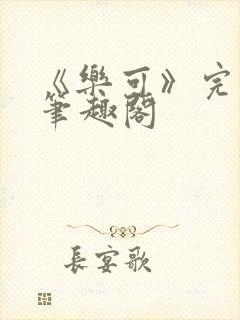 《樂可》完
筆趣閣
長宴歌